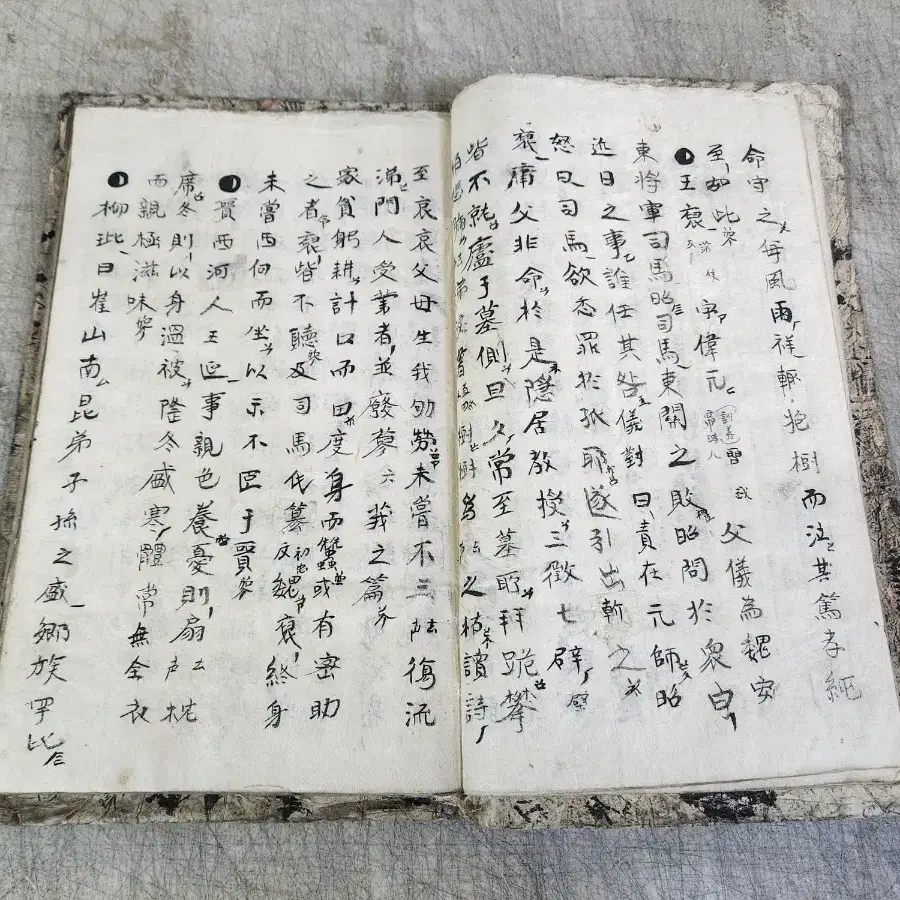 命守之每風雨祥輒抱樹而泣其篤孝純
至如此
王裒字偉元父儀為魏安
東將軍司馬昭司馬東關之敗昭問於衆曰
近日之事誰任其咎儀對曰責在元師昭
怒曰司馬欲委罪於孤耶遂引出斬之
裒痛父非命於是隱居教授三徵七辟
皆不就廬于墓側旦夕常至墓所拜跪攀
樹樹為之枯讀詩
至哀哀父母生我劬勞未嘗不三復流
涕門人受業者並廢蓼莪之篇
家貧躬耕計口而田度身而蠶或有密助
之者裒皆不聽及司馬氏簒魏裒終身
未嘗西向而坐以示不臣于賢
賢西河人王延事親色養憂則扇枕
席冬則以身溫被隆冬盛寒體常無全衣
而親極滋味
柳玭曰崔山南昆弟子孫之盛鄉族罕比